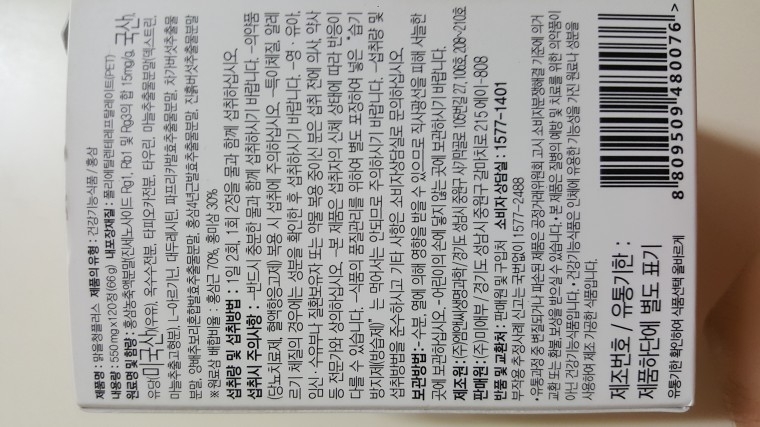 제품명 : 맑을청플러스 제품의 유형 : 건강기능식품 / 홍삼
내용량 : 550mg x 120정(66g) 내포장재질 : 폴리에틸렌테레프탈레이트(PET)
원료명 및 함량 : 홍삼농축액분말(진세노사이드 Rg1, Rb1 및 Rg3의 합 15mg/g, 국산),
유당(미국산)(우유), 옥수수전분, 타피오카전분, 타우린, 마늘추출물분말(덱스트린,
마늘추출고형분), L-아르기닌, 대두레시틴, 파프리카발효추출물분말, 차가버섯추출물
분말, 양배추브로콜리혼합발효추출물분말, 홍삼4년근발효추출물분말, 진흙버섯추출물분말
※원료삼 배합비율 : 홍삼근 70%, 홍미삼 30%
섭취량 및 섭취방법 : 1일 2회, 1회 2정을 물과 함께 섭취하십시오.
섭취시 주의사항 : -반드시 충분한 물과 함께 섭취하시기 바랍니다. -의약품
(당뇨치료제, 혈액항응고제) 복용 시 섭취에 주의하십시오. -특이체질, 알레
르기 체질의 경우에는 성분을 확인한 후 섭취하시기 바랍니다. -영·유아,
임신·수유부나 질환보유자 또는 약물 복용 중이신 분은 섭취 전에 의사, 약사
등 전문가와 상의하십시오. -본 제품은 섭취자의 신체 상태에 따라 반응이
다를 수 있습니다. -식품의 품질관리를 위하여 별도 포장하여 넣은 "습기
방지제(방습제)" 는 먹어서는 안되므로 주의하시기 바랍니다. -섭취량 및
섭취방법을 준수하시고 기타 사항은 소비자상담실로 문의하십시오.
보관방법 : -수분, 열에 의해 영향을 받을 수 있으므로 직사광선을 피해 서늘한
곳에 보관하십시오. -어린이의 손에 닿지 않는 곳에 보관하시기 바랍니다.
제조원 : (주)엠앤씨생명과학/경기도 성남시 중원구 사기막골로 105번길 27, 106호, 208~210호
판매원 : (주)미애부 / 경기도 성남시 중원구 갈마치로 215 에이-808
반품 및 교환처 : 판매원 및 구입처 소비자 상담실 : 1577-1401
부작용 추정사례 신고는 국번없이 1577-2488
•유통과정 중 변질되거나 파손된 제품은 공정거래위원회 고시 소비자분쟁해결 기준에 의거
교환 또는 환불, 보상을 받으실 수 있습니다. •본 제품은 질병의 예방 및 치료를 위한 의약품이
아닌 건강기능식품입니다. •건강기능식품은 인체에 유용한 기능성을 가진 원료나 성분을
사용하여 제조·가공한 식품입니다.
제조번호 / 유통기한 :
제품하단에 별도 표기
유통기한 확인하여 식품선택 올바르게
8 809509 480076 >